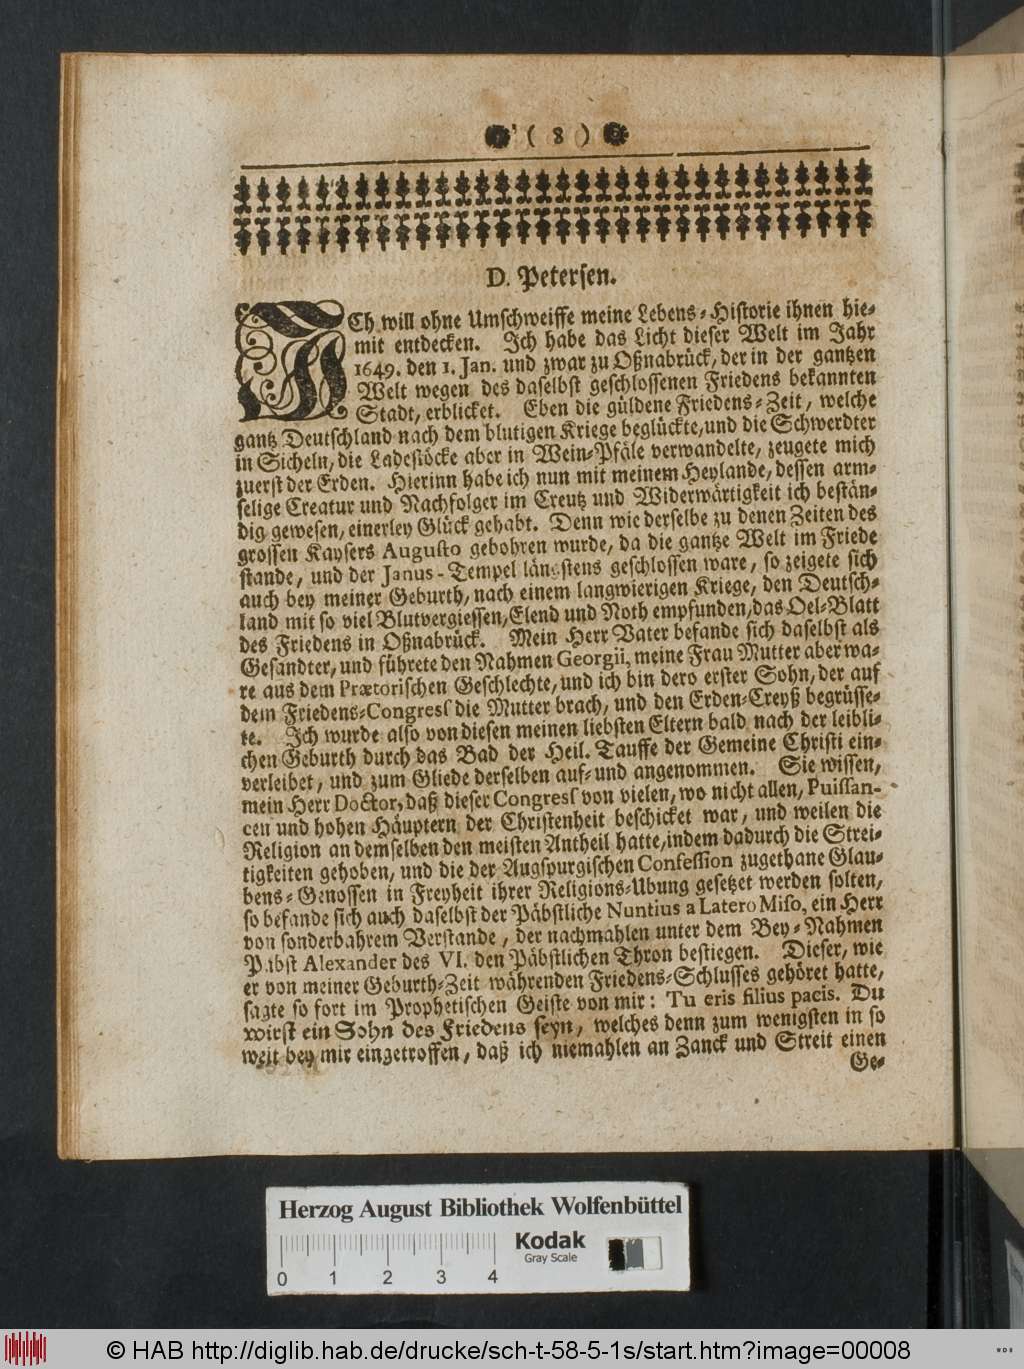 ( 8 )
D. Petersen.
ICh will ohne Umschweiffe meine Lebens-Historie ihnen hie-
mit entdecken. Ich habe das Licht dieser Welt im Jahr
1649. den 1. Jan. und zwar zu Oßnabrück, der in der gantzen
Welt wegen des daselbst geschlossenen Friedens bekannten
Stadt, erblicket. Eben die güldene Friedens-Zeit, welche
gantz Deutschland nach dem blutigen Kriege beglückte, und die Schwerdter
in Sicheln, die Ladestöcke aber in Wein-Pfäle verwandelte, zeugete mich
zuerst der Erden. Hierinn habe ich nun mit meinem Heylande, dessen arm-
selige Creatur und Nachfolger im Creutz und Widerwärtigkeit ich bestän-
dig gewesen, einerley Glück gehabt. Denn wie derselbe zu denen Zeiten des
grossen Kaysers Augusto gebohren wurde, da die gantze Welt im Friede
stande, und der Janus-Tempel längstens geschlossen ware, so zeigete sich
auch bey meiner Geburth, nach einem langwierigen Kriege, den Deutsch-
land mit so viel Blutvergiessen, Elend und Noth empfunden, das Oel-Blatt
des Friedens in Oßnabrück. Mein Herr Vater befande sich daselbst als
Gesandter, und führete den Nahmen Georgii, meine Frau Mutter aber wa-
re aus dem Prætorischen Geschlechte, und ich bin dero erster Sohn, der auf
dem Friedens-Congress die Mutter brach, und den Erden-Creyß begrüsse-
te. Ich wurde also von diesen meinen liebsten Eltern bald nach der leibli-
chen Geburth durch das Bad der Heil. Tauffe der Gemeine Christi ein-
verleibet, und zum Gliede derselben auf- und angenommen. Sie wissen,
mein Herr Doctor, daß dieser Congress von vielen, wo nicht allen, Puissan-
cen und hohen Häuptern der Christenheit beschicket war, und weilen die
Religion an demselben den meisten Antheil hatte, indem dadurch die Strei-
tigkeiten gehoben, und die der Augspurgischen Confession zugethane Glau-
bens-Genossen in Freyheit ihrer Religions-Ubung gesetzet werden solten,
so befande sich auch daselbst der Päbstliche Nuntius a Latero Miso, ein Herr
von sonderbahrem Verstande, der nachmahlen unter dem Bey-Nahmen
Pabst Alexander des VI. den Päbstlichen Thron bestiegen. Dieser, wie
er von meiner Geburth-Zeit währenden Friedens-Schlusses gehöret hatte,
sagte so fort im Prophetischen Geiste von mir: Tu eris filius pacis. Du
wirst ein Sohn des Friedens seyn, welches denn zum wenigsten in so
weit bey mir eingetroffen, daß ich niemahlen an Zanck und Streit einen
Ge-
Herzog August Bibliothek Wolfenbüttel
Kodak
Gray Scale
0 1 2 3 4
© HAB http://diglib.hab.de/drucke/sch-t-58-5-1s/start.htm?image=00008